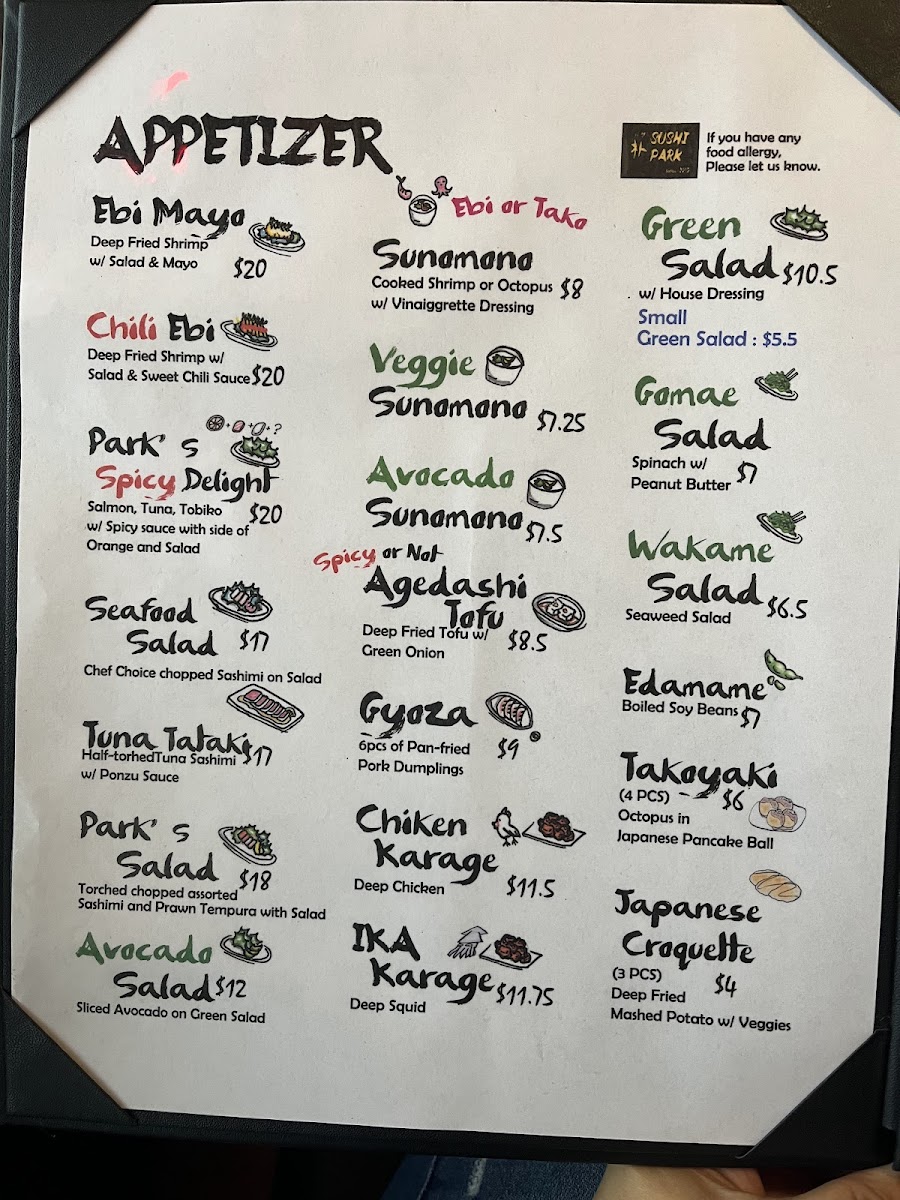 APPETIZER
Ebi Mayo
Deep Fried Shrimp
w/ Salad & Mayo $20
Chili Ebi
Deep Fried Shrimp w/
Salad & Sweet Chili Sauce $20
Park's
Spicy Delight
Salmon, Tuna, Tobiko $20
w/ Spicy sauce with side of
Orange and Salad
Seafood
Salad $17
Chef Choice chopped Sashimi on Salad
Tuna Tataki
Half-torhedTuna Sashimi $17
w/ Ponzu Sauce
Park's
Salad $18
Torched chopped assorted
Sashimi and Prawn Tempura with Salad
Avocado
Salad $12
Sliced Avocado on Green Salad
Ebi or Tako
Sunomono
Cooked Shrimp or Octopus $8
w/ Vinaiggrette Dressing
Veggie
Sunomono $7.25
Avocado
Sunomono $7.5
Spicy or Not
Agedashi
Tofu
Deep Fried Tofu w/ $8.5
Green Onion
Gyoza
6pcs of Pan-fried $9
Pork Dumplings
Chiken
Karage
Deep Chicken $11.5
IKA
Karage $11.75
Deep Squid
朴 SUSHI
PARK
If you have any
food allergy,
Please let us know.
Green
Salad $10.5
w/ House Dressing
Small
Green Salad : $5.5
Gomae
Salad
Spinach w/ $7
Peanut Butter
Wakame
Salad $6.5
Seaweed Salad
Edamame
Boiled Soy Beans $7
Takoyaki
(4 PCS) $6
Octopus in
Japanese Pancake Ball
Japanese
Croquette
(3 PCS) $4
Deep Fried
Mashed Potato w/ Veggies